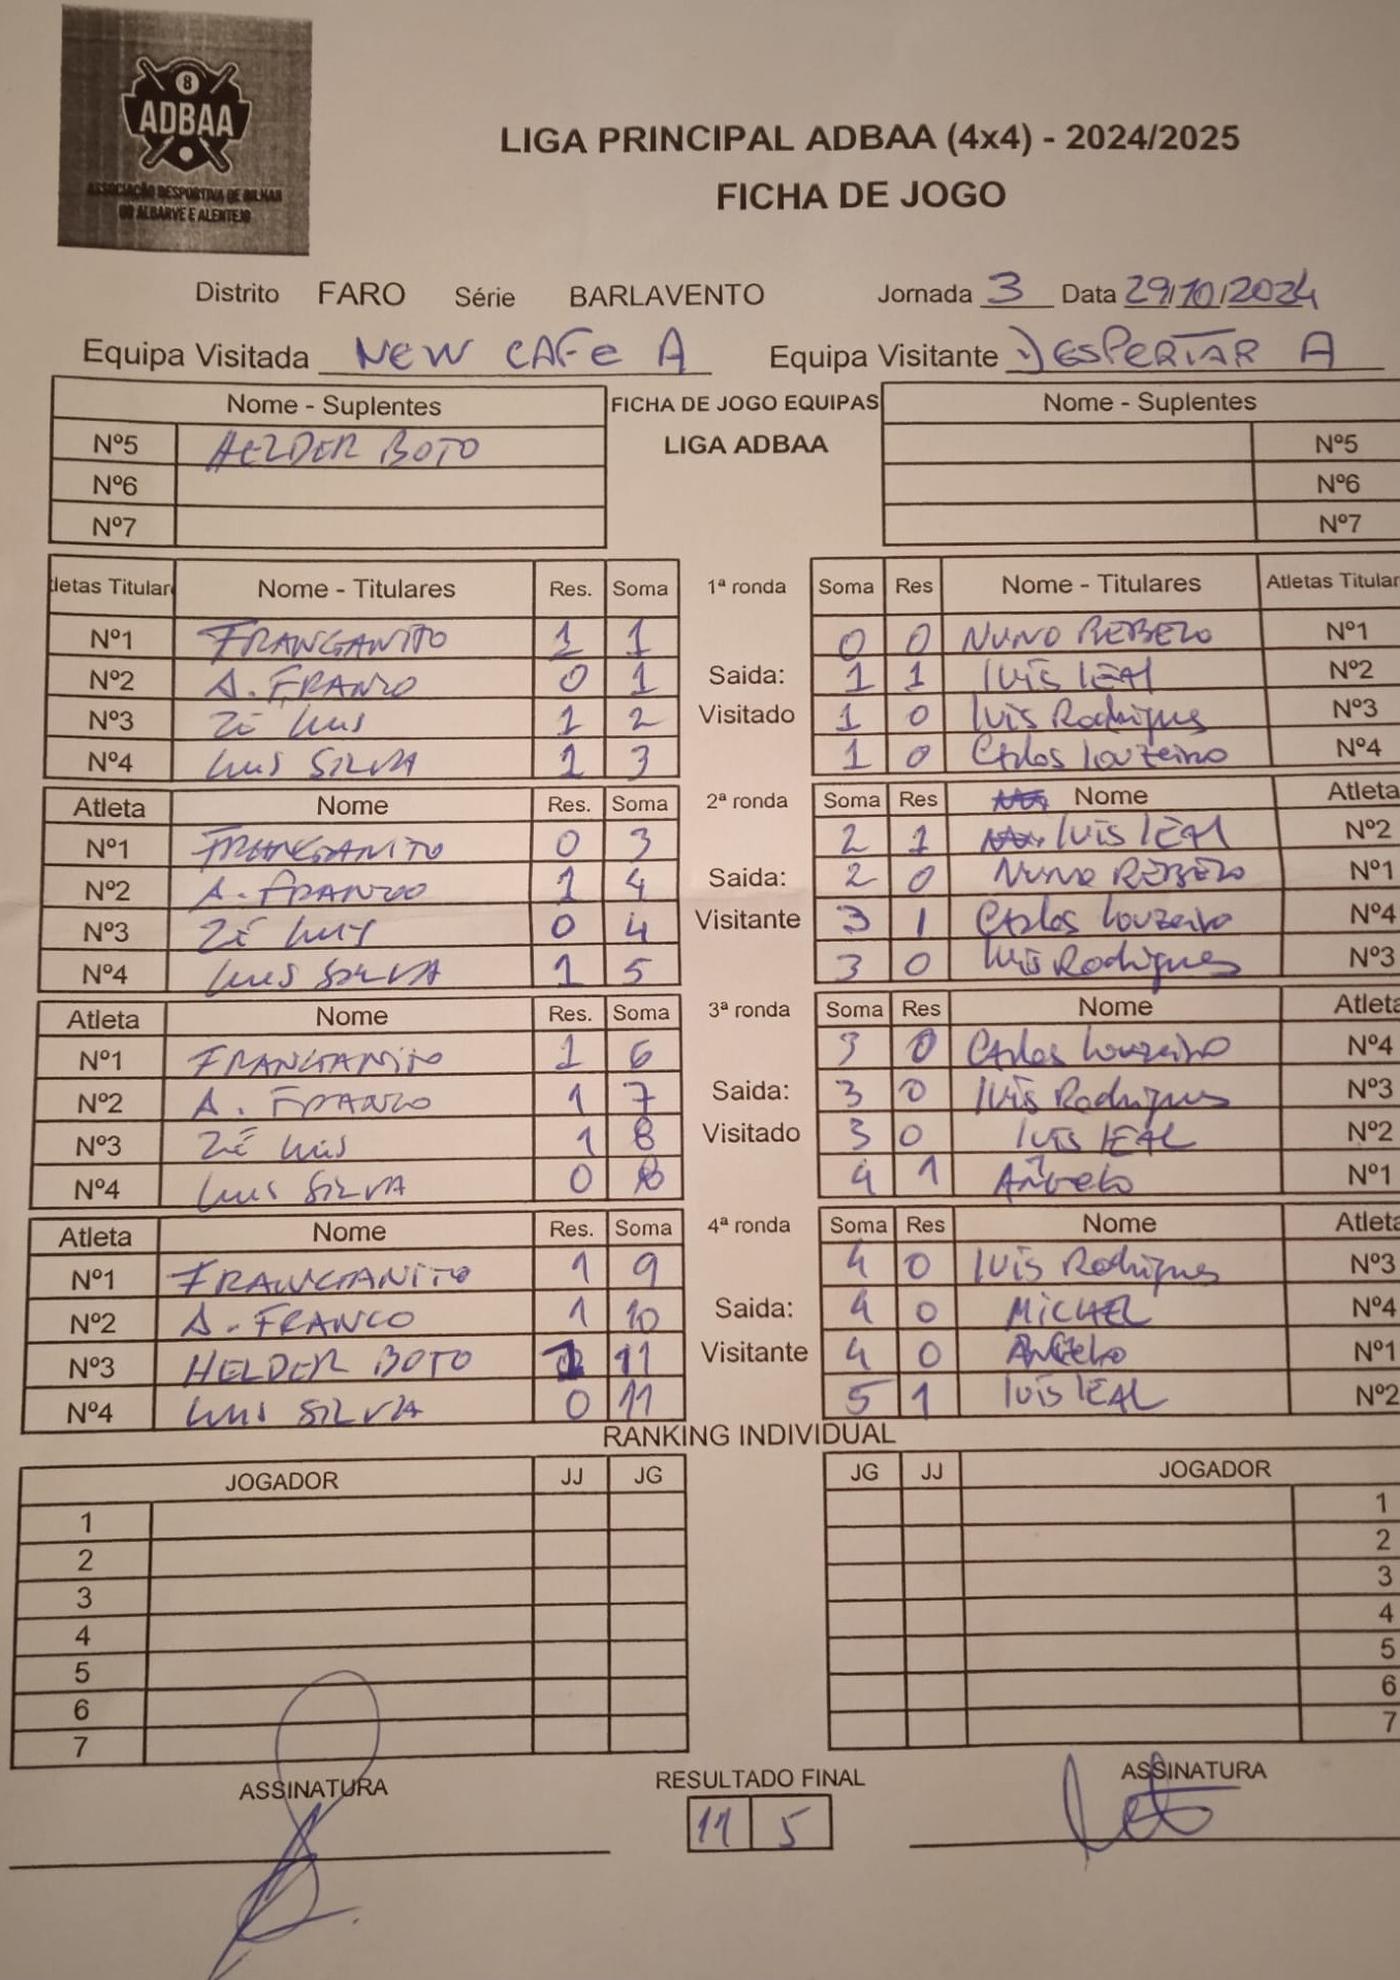 8
ADBAA
ASSOCIAÇÃO DESPORTIVA DE BILHAR
DO ALGARVE E ALENTEJO
LIGA PRINCIPAL ADBAA (4x4) - 2024/2025
FICHA DE JOGO
Distrito FARO Série BARLAVENTO Jornada 3 Data 29/10/2024
Equipa Visitada NEW CAFE A Equipa Visitante DESPERTAR A
Nome - Suplentes FICHA DE JOGO EQUIPAS Nome - Suplentes
Nº5 HELDER BOTO LIGA ADBAA Nº5
Nº6 Nº6
Nº7 Nº7
letas Titular Nome - Titulares Res. Soma 1ª ronda Soma Res Nome - Titulares Atletas Titular
Nº1 FRANGANITO 1 1 0 0 NUNO REBELO Nº1
Nº2 A. FRANCO 0 1 Saida: 1 1 LUÍS LEAL Nº2
Nº3 ZÉ LUIS 1 2 Visitado 1 0 LUÍS Rodrigues Nº3
Nº4 LUIS SILVA 1 3 1 0 CARLOS LOUZEIRO Nº4
Atleta Nome Res. Soma 2ª ronda Soma Res Nome Atleta
Nº1 FRANGANITO 0 3 2 1 LUÍS LEAL Nº2
Nº2 A. FRANCO 1 4 Saida: 2 0 NUNO REBELO Nº1
Nº3 ZÉ LUIS 0 4 Visitante 3 1 CARLOS LOUZEIRO Nº4
Nº4 LUIS SILVA 1 5 3 0 LUÍS Rodrigues Nº3
Atleta Nome Res. Soma 3ª ronda Soma Res Nome Atleta
Nº1 FRANGANITO 1 6 3 0 CARLOS LOUZEIRO Nº4
Nº2 A. FRANCO 1 7 Saida: 3 0 LUÍS Rodrigues Nº3
Nº3 ZÉ LUIS 1 8 Visitado 3 0 LUÍS LEAL Nº2
Nº4 LUIS SILVA 0 8 4 1 ANGELO Nº1
Atleta Nome Res. Soma 4ª ronda Soma Res Nome Atleta
Nº1 FRANGANITO 1 9 4 0 LUÍS Rodrigues Nº3
Nº2 A. FRANCO 1 10 Saida: 4 0 MICHAEL Nº4
Nº3 HELDER BOTO 1 11 Visitante 4 0 ANGELO Nº1
Nº4 LUIS SILVA 0 11 5 1 LUÍS LEAL Nº2
RANKING INDIVIDUAL
JOGADOR JJ JG JG JJ JOGADOR
1 1
2 2
3 3
4 4
5 5
6 6
7 7
ASSINATURA RESULTADO FINAL ASSINATURA
11 5